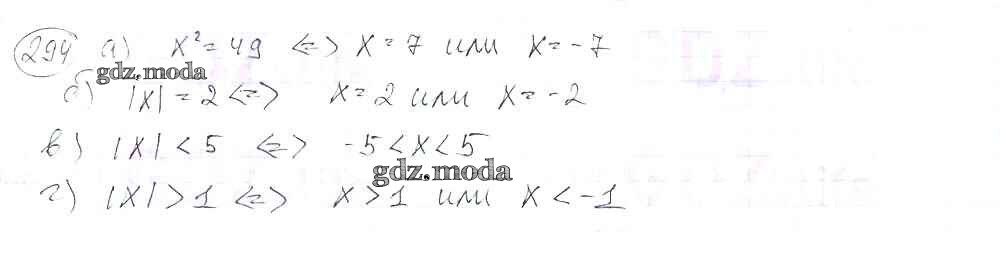 294 а) x² = 49 <=> x = 7 или x = -7
gdz.moda
б) |x| = 2 <=> x = 2 или x = -2
в) |x| < 5 <=> -5 < x < 5
gdz.moda
г) |x| > 1 <=> x > 1 или x < -1